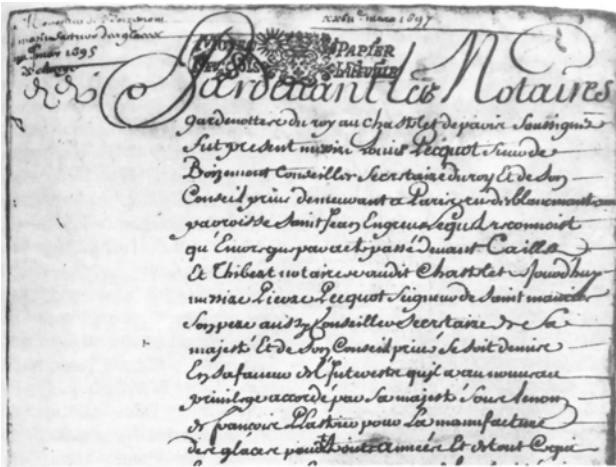 xxviii mars 1697
manufacture des glaces
mars 1695
MOYEN PAPIER
Pardevant Les Notaires
gardenottes du roy au Chastelet de paris soussignez
fut present messire Louis Pecquot sieur de
Conseiller Secretaire du roy Et de Son
Conseil privé demeurant a Paris rue des blancmanteaux
parroisse Saint Jean Engreve Lequel reconnoist
qu'Encore que par acte passé devant Caillet
Et Thibert notaires audit Chastelet Jourdhuy
messire Pierre Pecquot Seigneur de Saint maurice
Son pere aussy Conseiller Secretaire de Sa
majesté Et de Son Conseil privé Se Soit demis
En sa faveur de l'Interest qu'il a au nouveau
privilege accordé par Sa majesté Sous le nom
de françois Plastrier pour La manufacture
des glaces Et de tout Ce qui